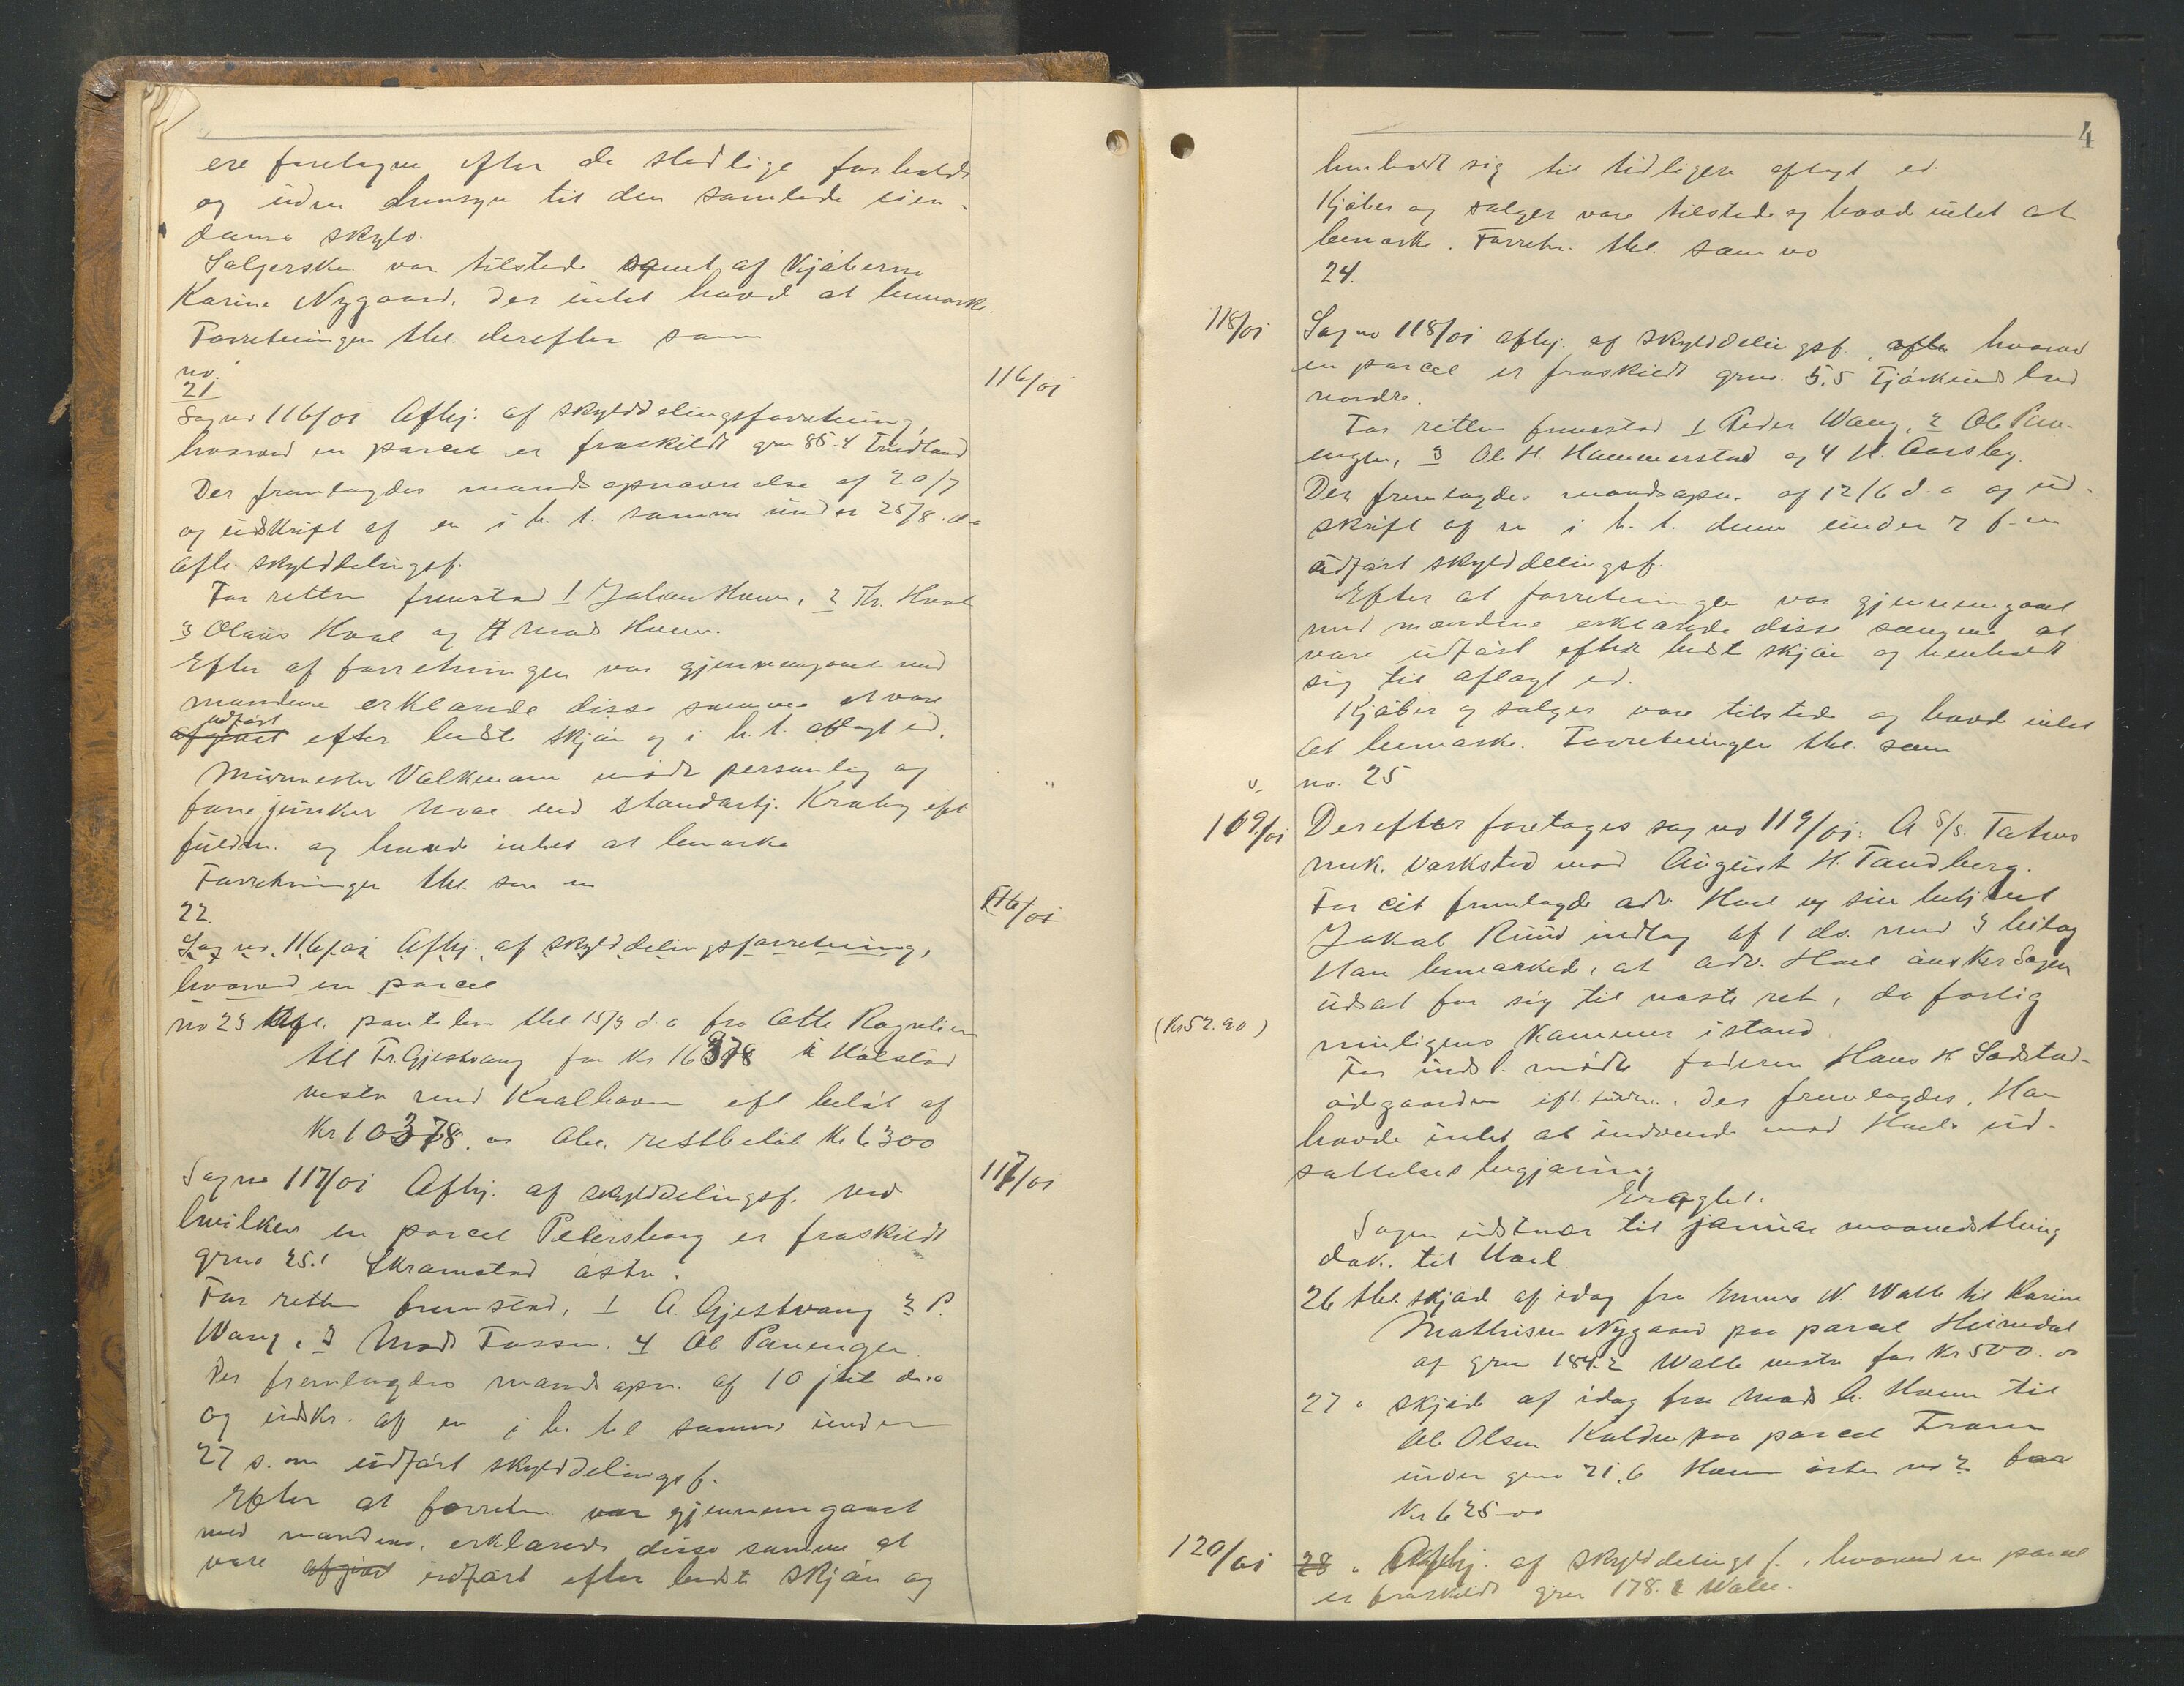 ere foretagne efter de stedlige forholde
og uden hensyn til den samlede eien-
doms skyld.
Sælgersken var tilstede samt af Kjøberne
Karine Nygaard, der intet havd at bemærke.
Forretningen thl. derefter som
no.
21
116/01
Sag no 116/01 Afhj. af skylddelingsforretning,
hvorved en parcel er fraskildt grn 85.4 Trudland
Der fremlagdes mandsopnævnelse af 20/7
og udskrift af en i h. t. samme under 25/8 d.a
afh. skylddelingsf.
For retten fremstod 1 Johan Hoem, 2 Th. Hoel
3 Olaus Hoel og 4 Mads Hoem.
Efter af forretningen var gjennemgaaet med
mændene erklærede disse samme at være
udført
afgivet efter bedste skjøn og i h. t. aflagt ed.
Murmester Valkmann mødte personlig og
fanejunker Moe ved standartj. Kraby ifl
fuldm. og havde intet at bemærke
"
Forretningen thl. som no
22.
116/01
Sag no. 116/01 Afhj. af skylddelingsforretning,
hvorved en parcel
no 23 thl. pantebr. thl 15/3 d.a fra Otte Rognlien
til Fr. Gjestvang for Kr 16378 i Hølstad
vestre med Kaalhaven ift. beløb af
Kr 10378.00 Obl. restbeløb Kr 6300
117/01
Sag no 117/01 Afhj. af skylddelingsf. ved
hvilken en parcel Petersborg er fraskildt
grno 25.1 Skramstad østre.
For retten fremstod, 1 A. Gjestvang 2 P.
Wang, 3 Mads Fossen. 4 Ole Pavengen
Der fremlagdes mandsopn. af 10 juli d.a
og udskr. af en i h. til samme under
27 s. m udført skylddelingsf.
Efter at forretn var gjennemgaaet
med mændene, erklærede disse samme at
være afgivet udført efter bedste skjøn og
4
henholdt sig til tidligere aflagt ed.
Kjøber og sælger vare tilstede og havd intet at
bemærke. Forretn. thl. som no
24.
118/01
Sag no 118/01 afhj. af skylddelingsf., efter hvorved
en parcel er fraskildt grno. 5.5 Tjørkindland
nordre.
For retten fremstod 1 Peder Wang, 2 Ole Pav-
engen, 3 Ole H. Hammerstad og 4 H. Aarsby.
Der fremlagdes mandsopn. af 12/6 d.a og ud-
skrift af en i h. t. denne under 7 f. m
udført skylddelingsf.
Efter at forretningen var gjennemgaaet
med mændene erklærede disse samme at
være udført efter bedste skjøn og henholdt
sig til aflagt ed.
Kjøber og sælger vare tilstede og havde intet
at bemærke. Forretningen thl. som
no. 25
119/01
Derefter foretages sag no 119/01. A S/S. Tatens
mek. Værksted mod August H. Tandberg.
For cit fremlagde adv. Hoel ved sin betjent
Jakob Ruud indlæg af 1 ds. med 3 bilag
Han bemærked, at adv. Hoel ønsker sagen
udsat for sig til næste ret, da forlig
(Kr 52.90)
muligens kommer istand.
For indst. mødte faderen Hans H. Sødstad-
ødegaarden ifl. fuldm., der fremlagdes. Han
havde intet at indvende mod Hoels ud-
sættelsesbegjæring
Eragtet.
Sagen udstaar til januar maanedsthing
dok. til Hoel
26 thl. skjøde af idag fra Emma N. Walle til Karine
Mathisen Nygaard paa parcel Heimdal
af grno 184.2 Walle vestre for Kr 500.00
27 " skjøde af idag fra Mads A. Hoem til
Ole Olsen Kolden paa parcel Fram
under grno 21.6 Hoem østre no 2 for
Kr 625-00
120/01
28 " Afhj. af skylddelingsf., hvorved en parcel
er fraskildt grno 178.2 Walle.